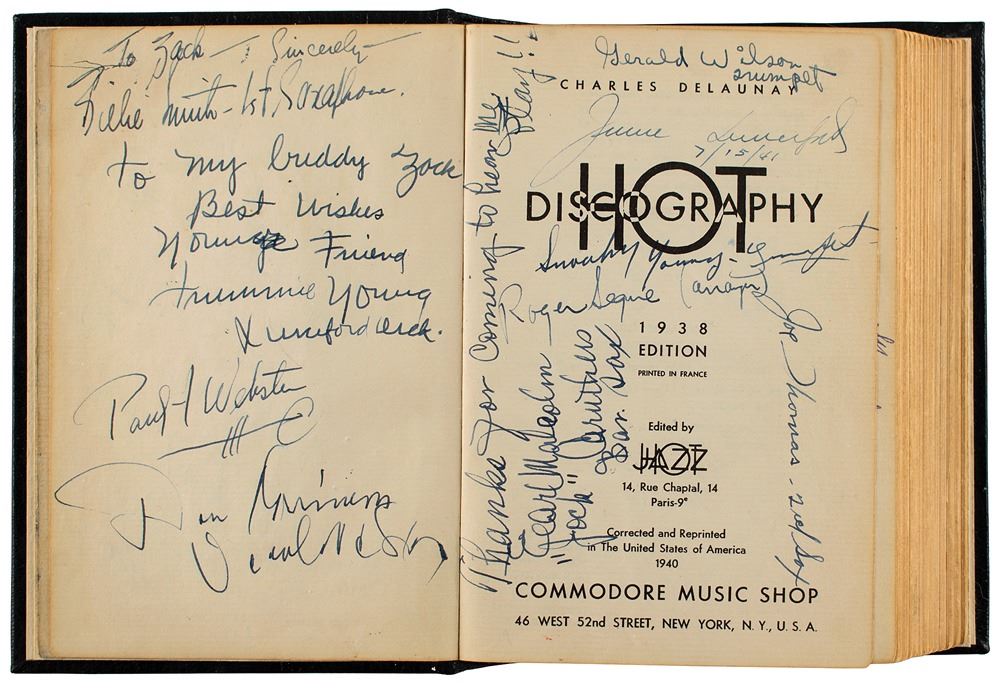 To Zack - Sincerely
Willie Smith - 1st Saxophone.
to my buddy Zack
Best Wishes
Young Friend
Trummie Young
Lunceford orch.
Paul Webster
Dan Grissom
Thanks for coming to hear me play!!
Earl Malcolm
"Jock" Caruthers
Bar. Sax
Gerald Wilson
trumpet
CHARLES DELAUNAY
Jimmie Lunceford
7/15/41
HOT
DISCOGRAPHY
Snooky Young - trumpet
Roger Segure (arranger)
Joe Thomas - 2nd Sax
1938
EDITION
PRINTED IN FRANCE
Edited by
HOT JAZZ
14, Rue Chaptal, 14
Paris-9e
Corrected and Reprinted
in The United States of America
1940
COMMODORE MUSIC SHOP
46 WEST 52nd STREET, NEW YORK, N. Y., U. S. A.